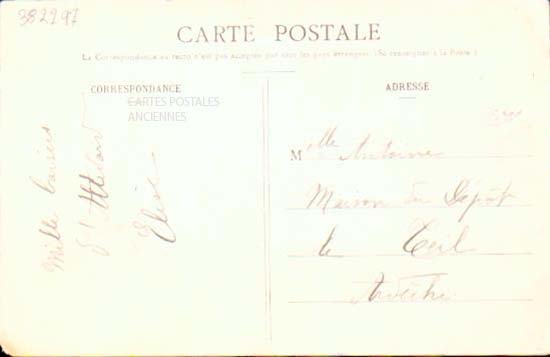 382297
CARTE POSTALE
La Correspondance au recto n'est pas acceptée par tous les pays étrangers (Se renseigner à la Poste)
CORRESPONDANCE
CARTES POSTALES
ANCIENNES
ADRESSE
Mille baisers
Mlle Antoinine
Maison du Dépôt
le Teil
Ardèche